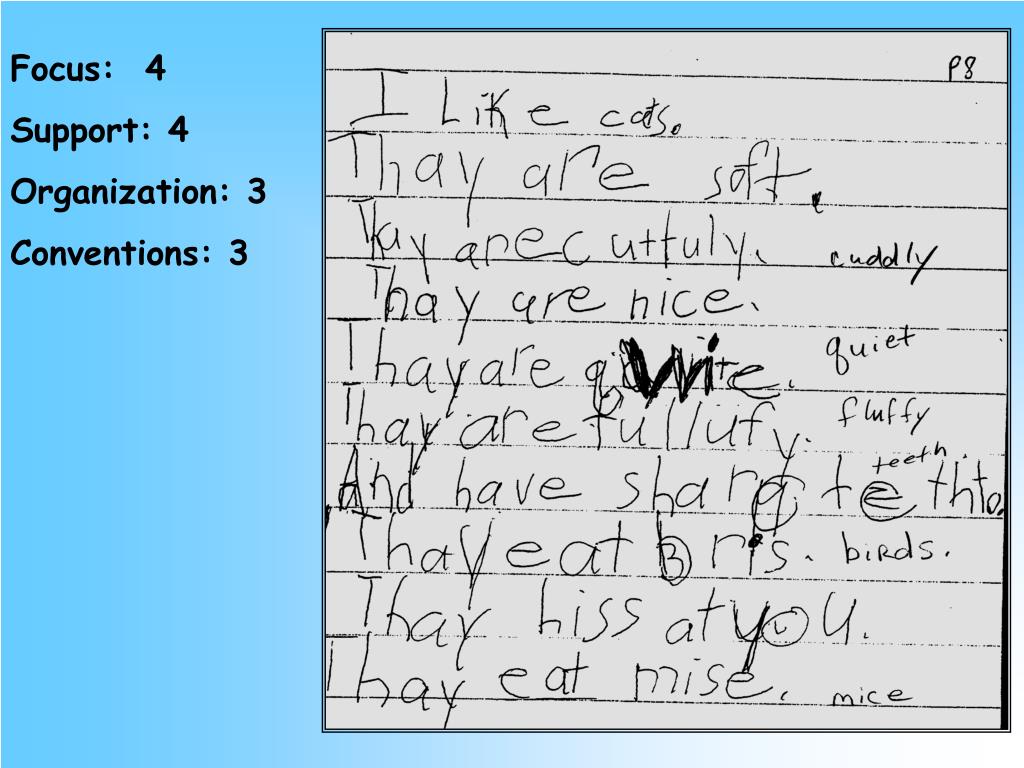 Focus: 4
Support: 4
Organization: 3
Conventions: 3
P8
I Like cats.
Thay are soft.
Thay are cuttuly. cuddly
Thay are nice.
Thay are qiwite. quiet
Thay are fullufy. fluffy
And have sharp teeth. teeth
Thay eat bris. birds.
Thay hiss at you.
Thay eat mise. mice